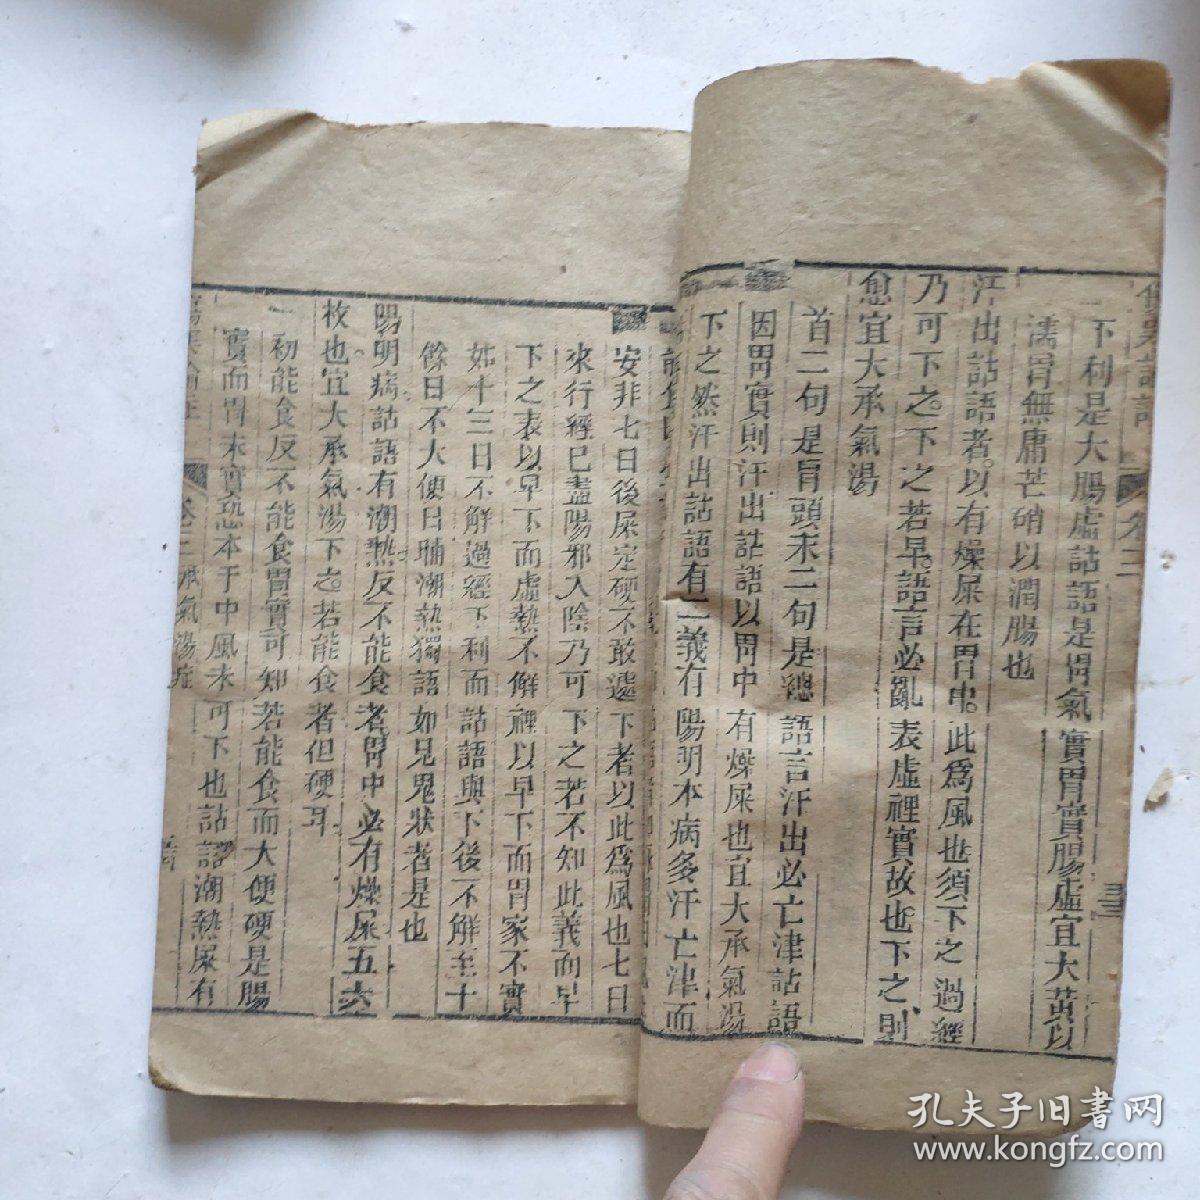 下利是大腸虛詀語是胃氣實胃實腸虛宜大黃以
濡胃無庸芒硝以潤腸也
汗出詀語者以有燥屎在胃中此爲風也須下之過經
乃可下之下之若早語言必亂表虛裡實故也下之則
愈宜大承氣湯
首二句是冐頭末二句是總語言汗出必亡津詀語
因胃實則汗出詀語以胃中有燥屎也宜大承氣湯
下之然汗出詀語有二義有陽明本病多汗亡津而
安非七日後屎定硬不敢遽下者以此爲風也七日
來行經已盡陽邪入陰乃可下之若不知此義而早
下之表以早下而虛熱不解裡以早下而胃家不實
如十三日不解過經下利而詀語與下後不解至十
餘日不大便日晡潮熱獨語如見鬼狀者是也
陽明病詀語有潮熱反不能食者胃中必有燥屎五六
枚也宜大承氣湯下之若能食者但硬耳
初能食反不能食胃實可知若能食而大便硬是腸
實而胃未實恐本于中風未可下也詀語潮熱屎有
卷三 承氣湯症